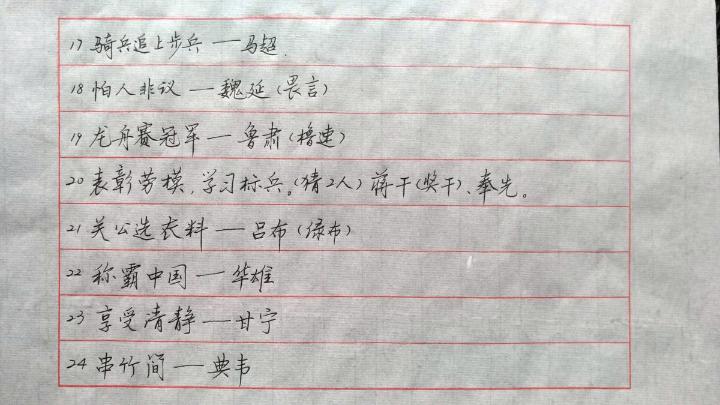 17 骑兵追上步兵——马超.
18 怕人非议——魏延(畏言)
19 龙舟赛冠军——鲁肃(橹速)
20 表彰劳模,学习标兵。(猜2人)蒋干(奖干)、奉先。
21 关公选衣料——吕布(绿布)
22 称霸中国——华雄
23 享受清静——甘宁
24 串竹简——典韦